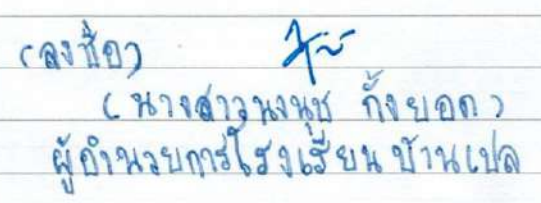 (ลงชื่อ)
(นางสาวนงนุช กิ้งยอด)
ผู้อำนวยการโรงเรียนบ้านเปล